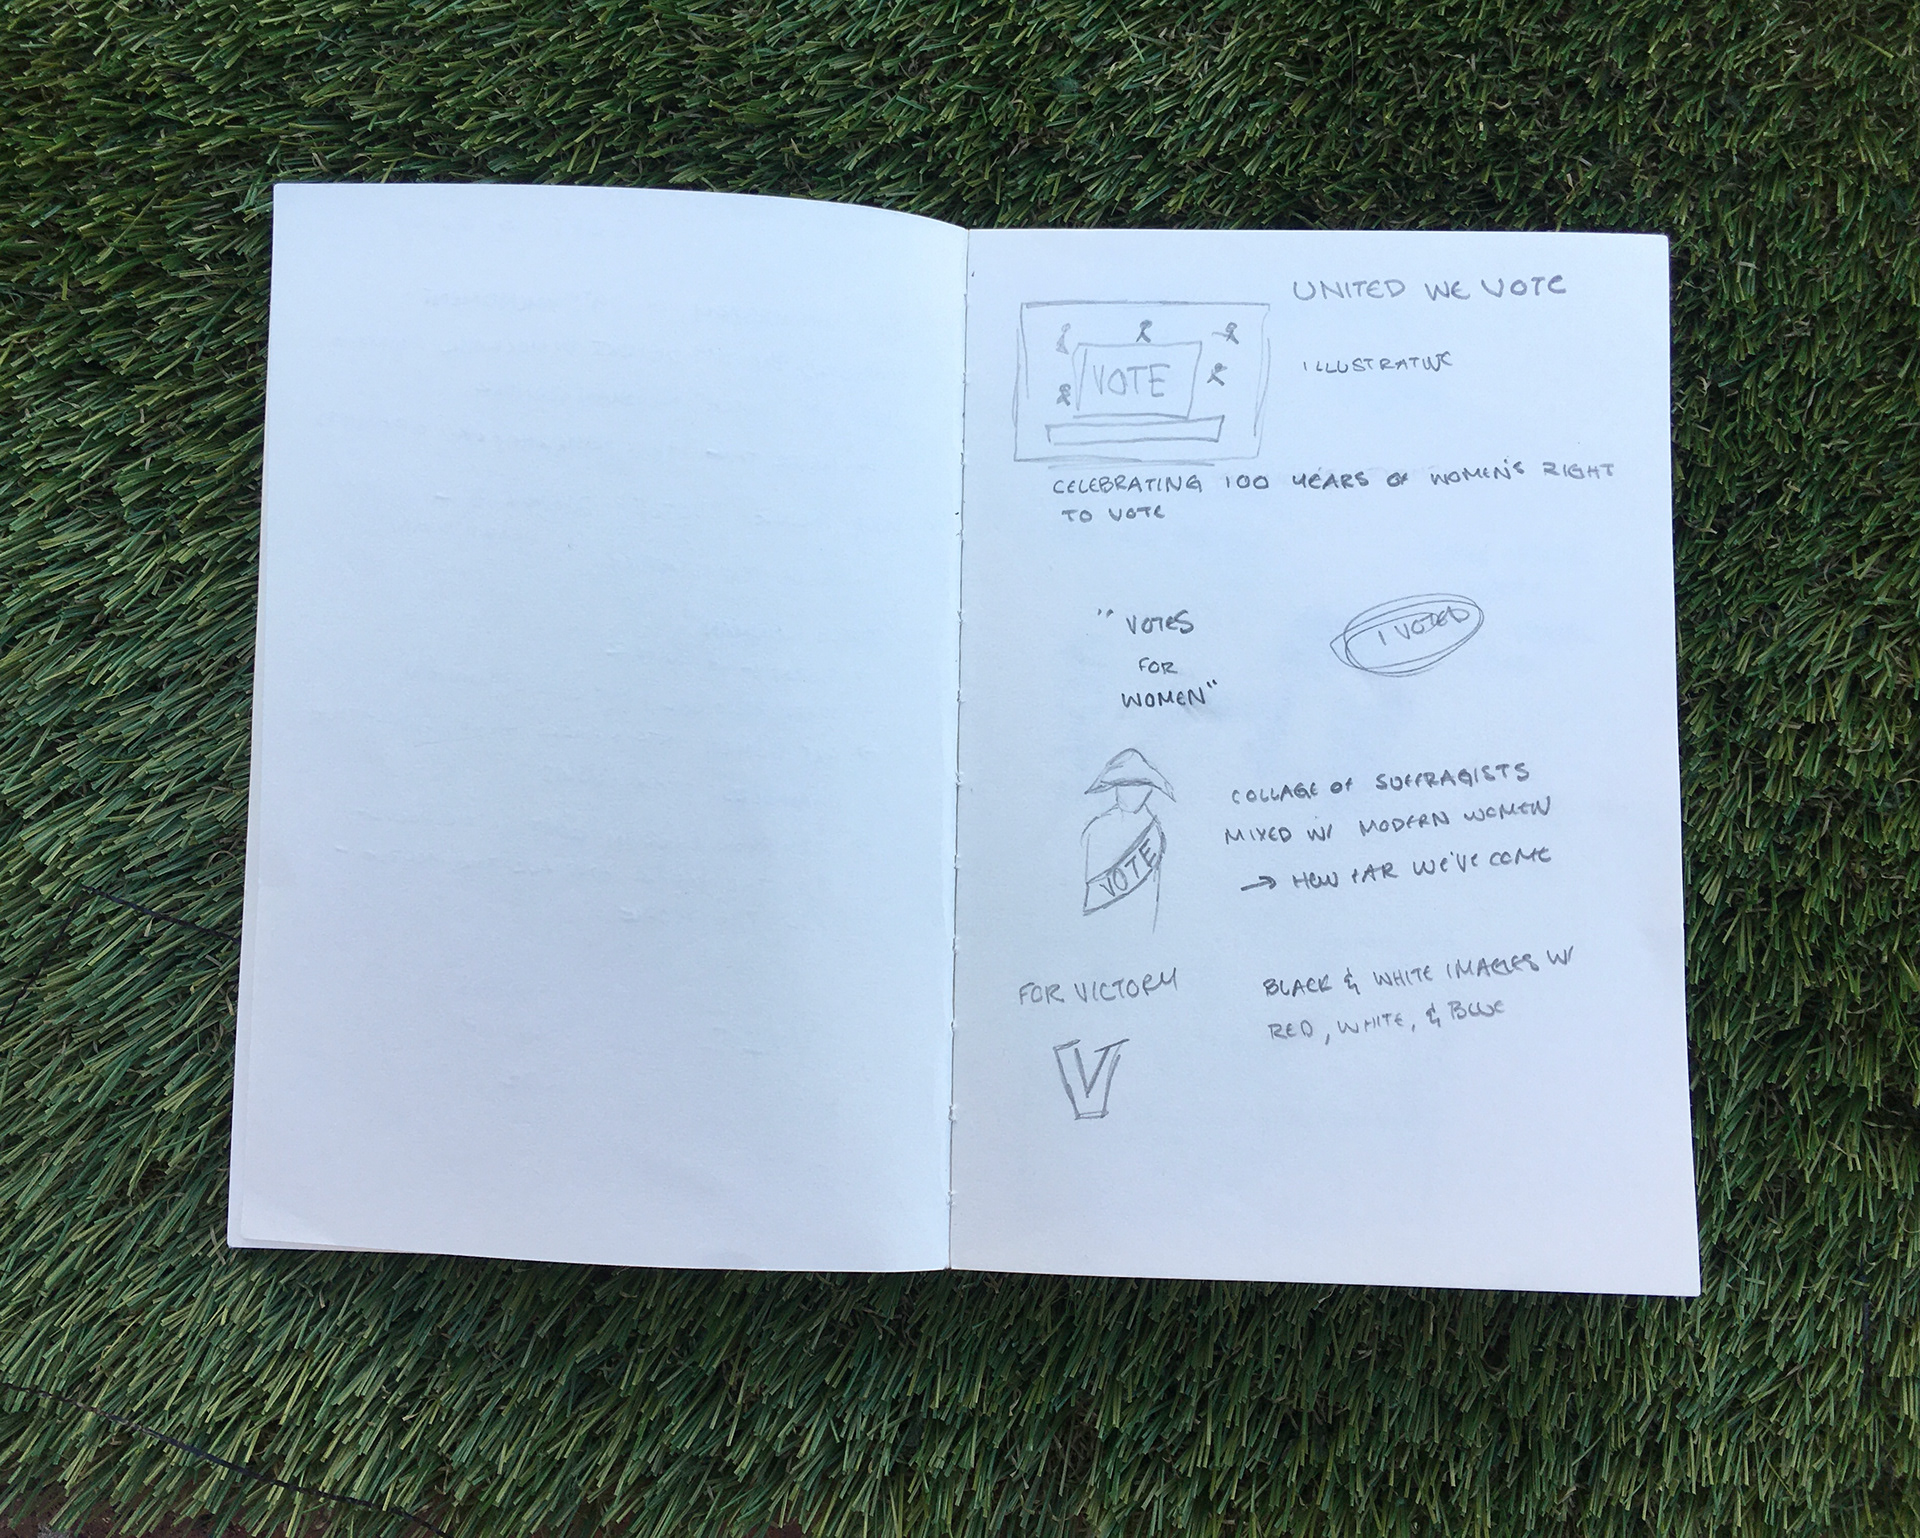 UNITED WE VOTE
VOTE
ILLUSTRATIVE
CELEBRATING 100 YEARS OF WOMEN'S RIGHT
TO VOTE
"VOTES
FOR
WOMEN"
I VOTED
COLLAGE OF SUFFRAGISTS
MIXED W/ MODERN WOMEN
→ HOW FAR WE'VE COME
VOTE
FOR VICTORY
V
BLACK & WHITE IMAGES W/
RED, WHITE, & BLUE